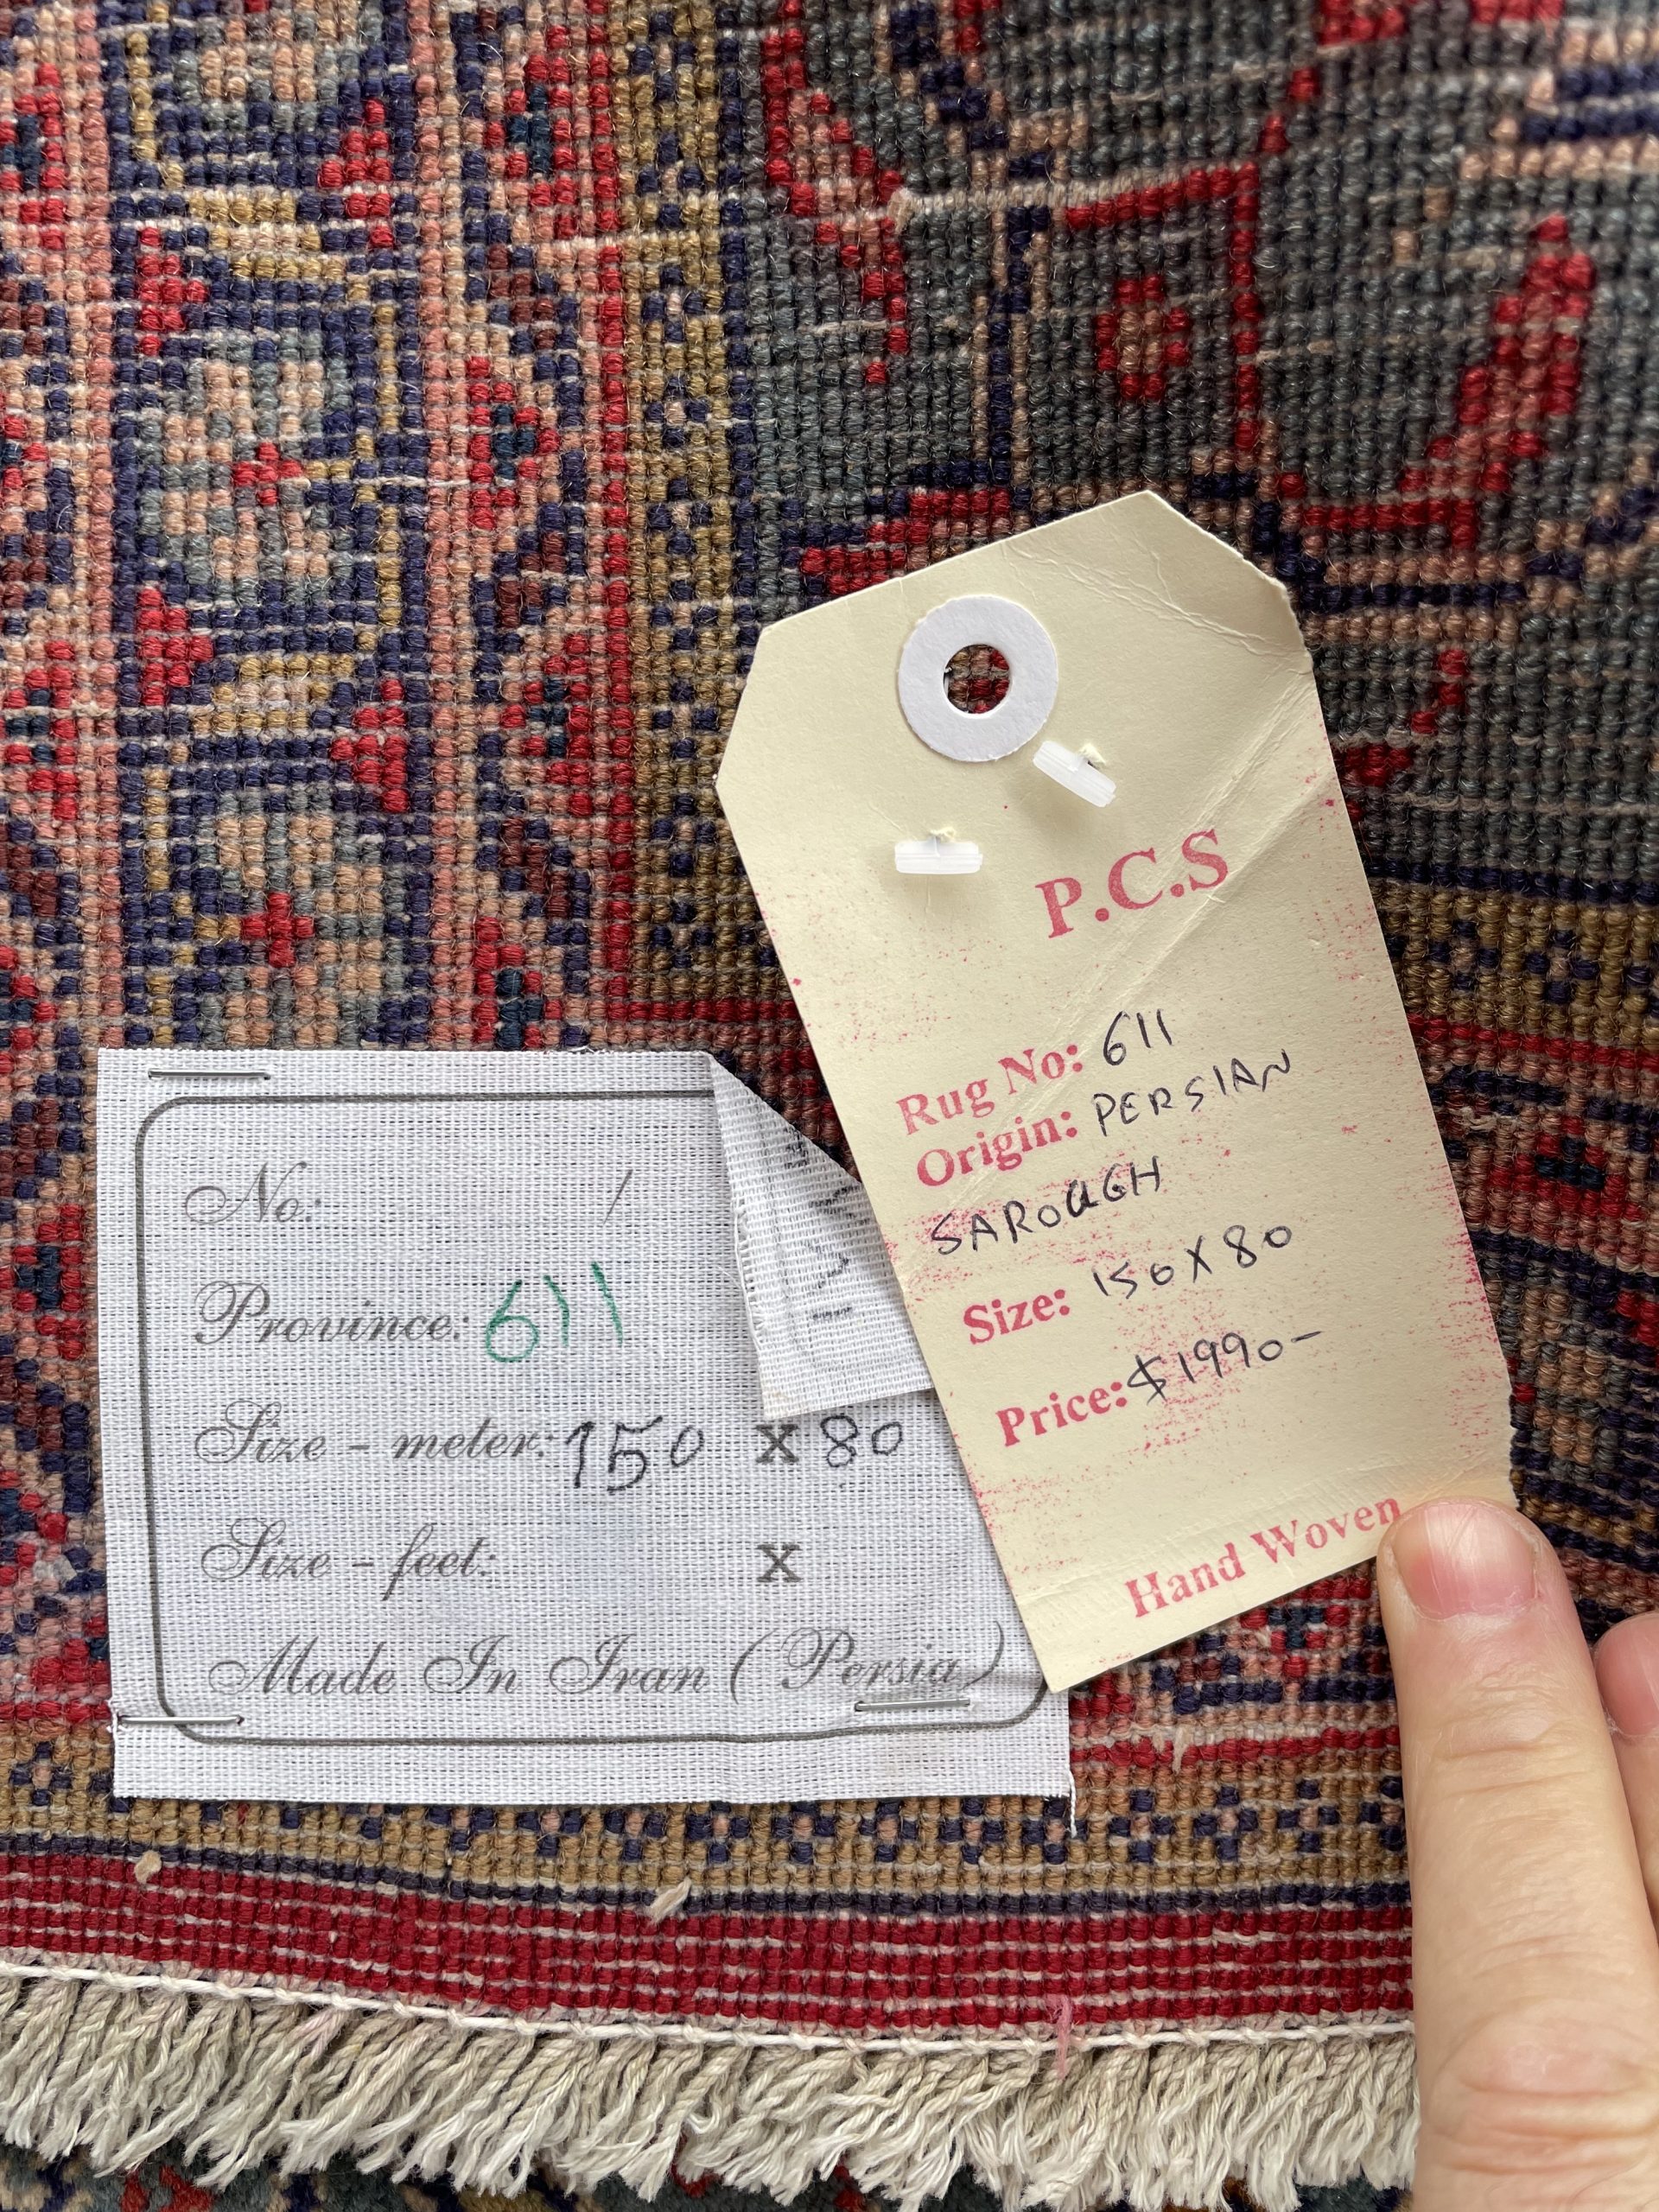 P.C.S
Rug No: 611
Origin: PERSIAN
SAROUGH
Size: 150 X 80
Price: $1990-
Hand Woven
No: /
Province: 611
Size - meter: 150 X 80
Size - feet: X
Made In Iran (Persia)